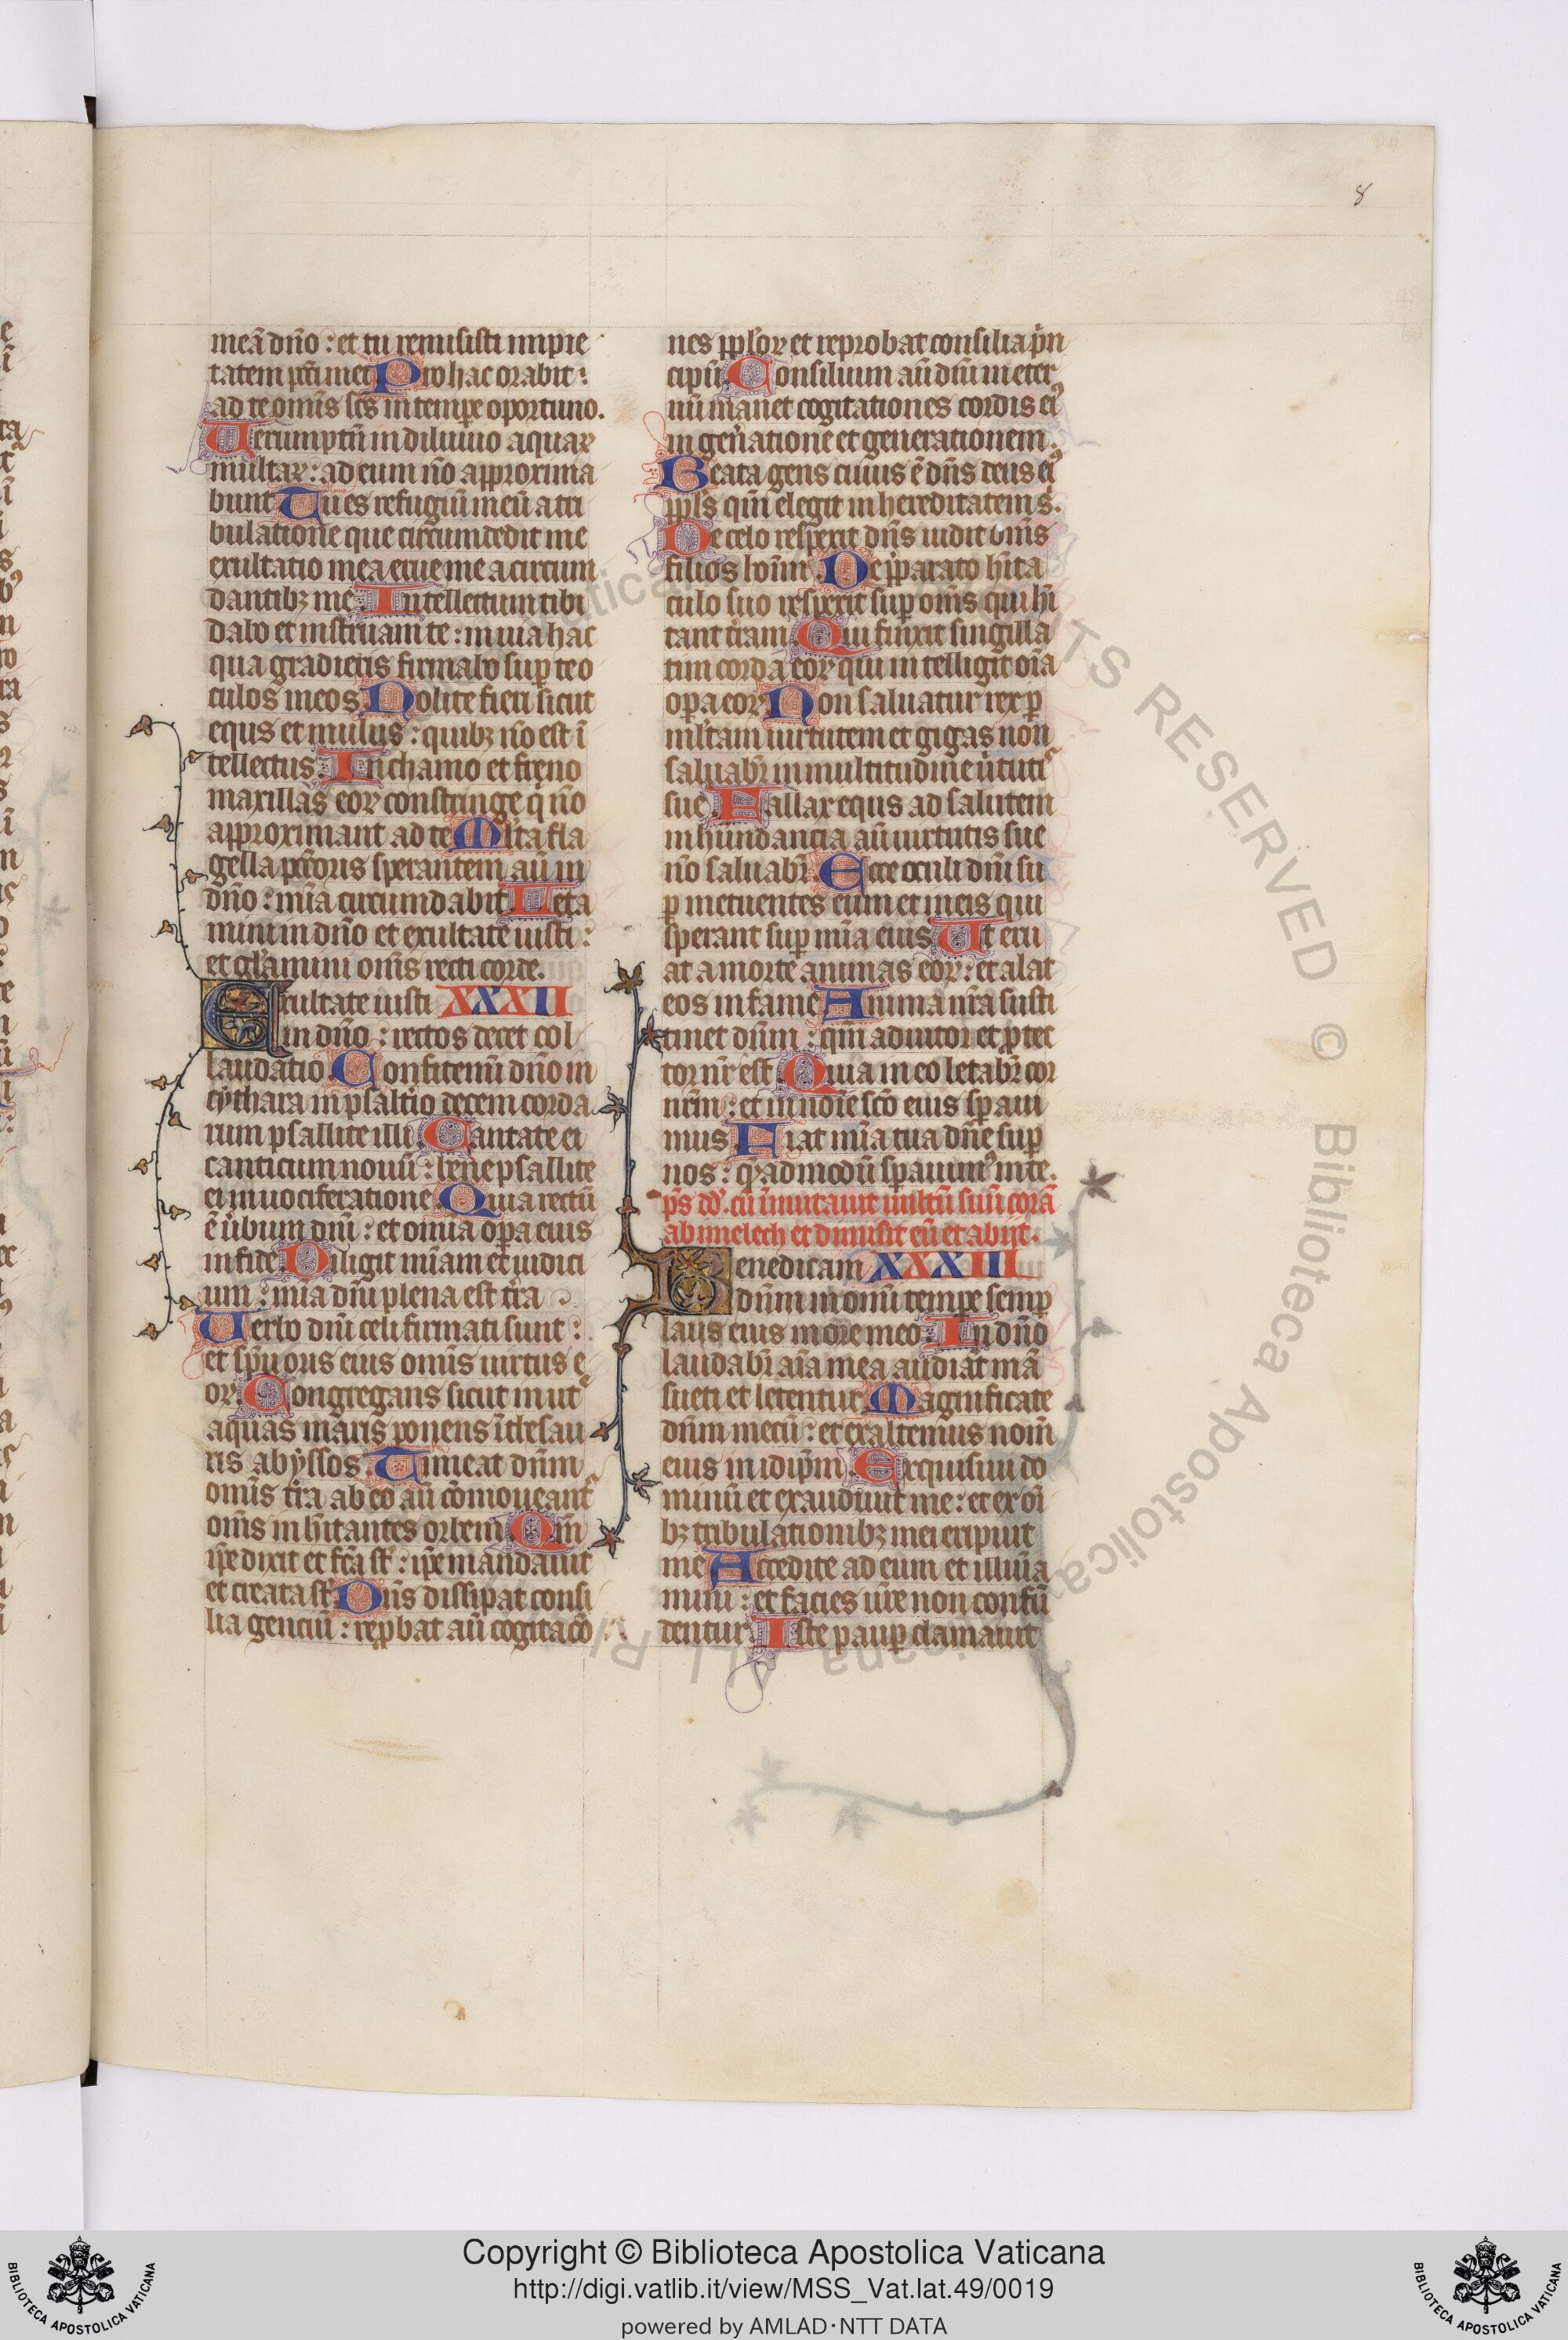 8
meā dn̄o : et tu remisisti impie
tatem pcc̄i mei Pro hac orabit :
ad te omīs sc̄s in tempe oportuno.
Uerumptn̄ in diluuio aquaꝝ
multaꝝ : ad eum nō approxima
bunt Tu es refugiū meū a tri
bulatione que circumdedit me
exultatio mea erue me a circum
dantibꝫ me Intellectum tibi
dabo et instruam te : in uia hac
qua gradieris firmabo suꝑ te o
culos meos Nolite fieri sicut
equs et mulus : quibꝫ nō est ī
tellectus In chamo et freno
maxillas eoꝝ constringe q̇ nō
approximant ad te Ml̄ta fla
gella pcc̄oris sperantem aū in
dn̄o : mīa circumdabit Leta
mini in dn̄o et exultate iusti :
et gl̄amini omīs recti corde.
Exultate iusti XXXII
in dn̄o : rectos decet col
laudatio Confitemī dn̄o in
cythara in psaltio decem corda
rum psallite illi Cantate ei
canticum nouū : bene psallite
ei in uociferatione Quia rectū
ē u̇bum dn̄i : et omīa oꝑa eius
in fide Diligit mīam et iudici
um : mīa dn̄i plena est tr̄a
Uerbo dn̄i celi firmati sunt :
et spū oris eius omīs uirtus e
oꝝ Congregans sicut in ut̄
aquas maris ponens ī thesau
ris abyssos Timeat dn̄m
omīs tr̄a ab eo aū cōmoueant̄
om̄s inhītantes orbem Qm̄
ip̄e dixit et fcā st̄ : ip̄e mandauit
et creata st̄ Dn̄s dissipat consi
lia genciū : reꝓbat aū cogitacō
nes ppl̄oꝝ et reprobat consilia pn̄
cipū Consilium aū dn̄i in eter
nū manet cogitationes cordis eiꝰ
in gen̄atione et generationem.
Beata gens cuius ē dn̄s deus eiꝰ
ppl̄s qm̄ elegit in hereditatem s.
De celo respexit dn̄s uidit om̄s
filios hom̄ De p̄parato hīta
culo suo respexit suꝑ om̄s qui hī
tant tr̄am Qui finxit singilla
tim corda eoꝝ qui intelligit oīa
oꝑa eoꝝ Non saluatur rex ꝑ
ml̄tam uirtutem et gigas non
saluabr̄ in multitudine u̇tutis
sue Fallax equs ad salutem
in hundancia aū uirtutis sue
nō saluabr̄ Ecce oculi dn̄i su
ꝑ metuentes eum et in eis qui
sperant suꝑ mīa eius Ut eru
at a morte animas eoꝝ : et alat
eos in fame Anima nr̄a susti
tinet dn̄m : qm̄ adiutor et ꝓtec
tor nr̄ est Quia in eo letabr̄ cor
nr̄m : et in noīe scō eius sꝑaui
mus Fiat mīa tua dn̄e suꝑ
nos : q̄admodū sꝑauimꝰ in te.
ps̄ dd̄. cū īmutauit uultū suū corā
abimelech et dimisit eū et abijt.
Benedicam XXXIII
dn̄m in omī tempe semꝑ
laus eius in ore meo In dn̄o
laudabr̄ aīa mea audiāt mā
sueti et letentur Magnificate
dn̄m mecū : et exaltemus nom̄
eius in idip̄m Exquisiui do
minū et exaudiuit me : et ex oī
bꝫ tribulationibꝫ meis eripuit
me Accedite ad eum et illumīa
mini : et facies ur̄e non confū
dentur Iste pauꝑ clamauit
© Biblioteca Apostolica Vaticana ALL RIGHTS RESERVED
Copyright © Biblioteca Apostolica Vaticana
http://digi.vatlib.it/view/MSS_Vat.lat.49/0019
powered by AMLAD·NTT DATA
BIBLIOTECA APOSTOLICA VATICANA
BIBLIOTECA APOSTOLICA VATICANA